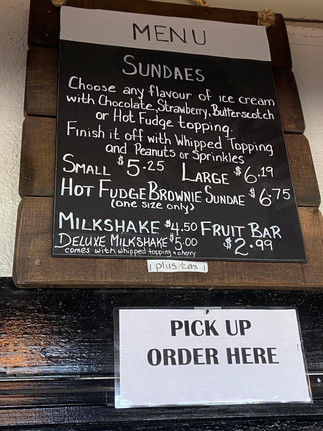 MENU
SUNDAES
Choose any flavour of ice cream
with Chocolate, Strawberry, Butterscotch
or Hot Fudge topping.
Finish it off with Whipped Topping
and Peanuts or Sprinkles
SMALL $5.25 LARGE $6.19
HOT FUDGE BROWNIE SUNDAE $6.75
(one size only)
MILKSHAKE $4.50 FRUIT BAR
DELUXE MILKSHAKE $5.00 $2.99
comes with whipped topping & cherry
plus tax
PICK UP
ORDER HERE